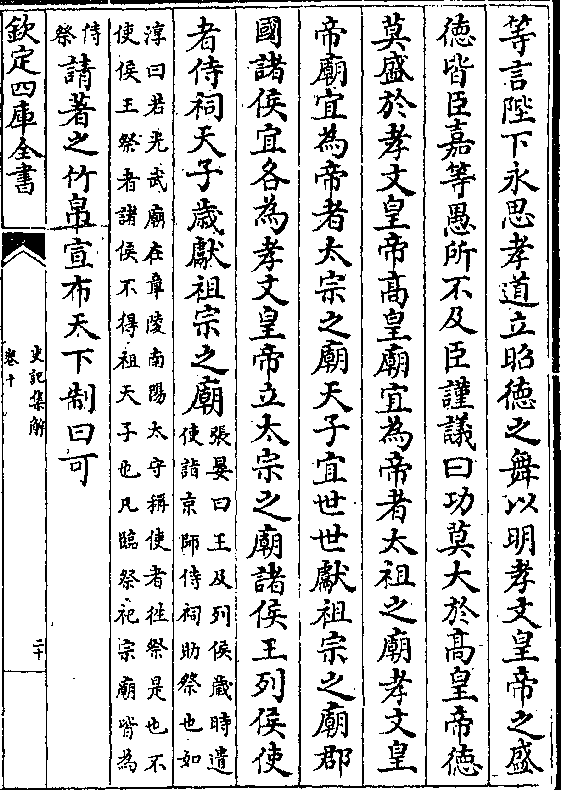 等言陛下永思孝道立昭徳之舞以明孝文皇帝之盛
徳皆臣嘉等愚所不及臣謹議曰功莫大於髙皇帝徳
莫盛於孝文皇帝髙皇廟宜為帝者太祖之廟孝文皇
帝廟宜為帝者太宗之廟天子宜世世獻祖宗之廟郡
國諸侯宜各為孝文皇帝立太宗之廟諸侯王列侯使
者侍祠天子歳獻祖宗之廟
張晏曰王及列侯歳時遣
使詣京師侍祠助祭也如
淳曰若光武廟在章陵南陽太守稱使者往祭是也不
使侯王祭者諸侯不得祖天子也凡臨祭祀宗廟皆為
侍
祭
請著之竹帛宣布天下制曰可
欽定四庫全書
史記集解
卷十
二十